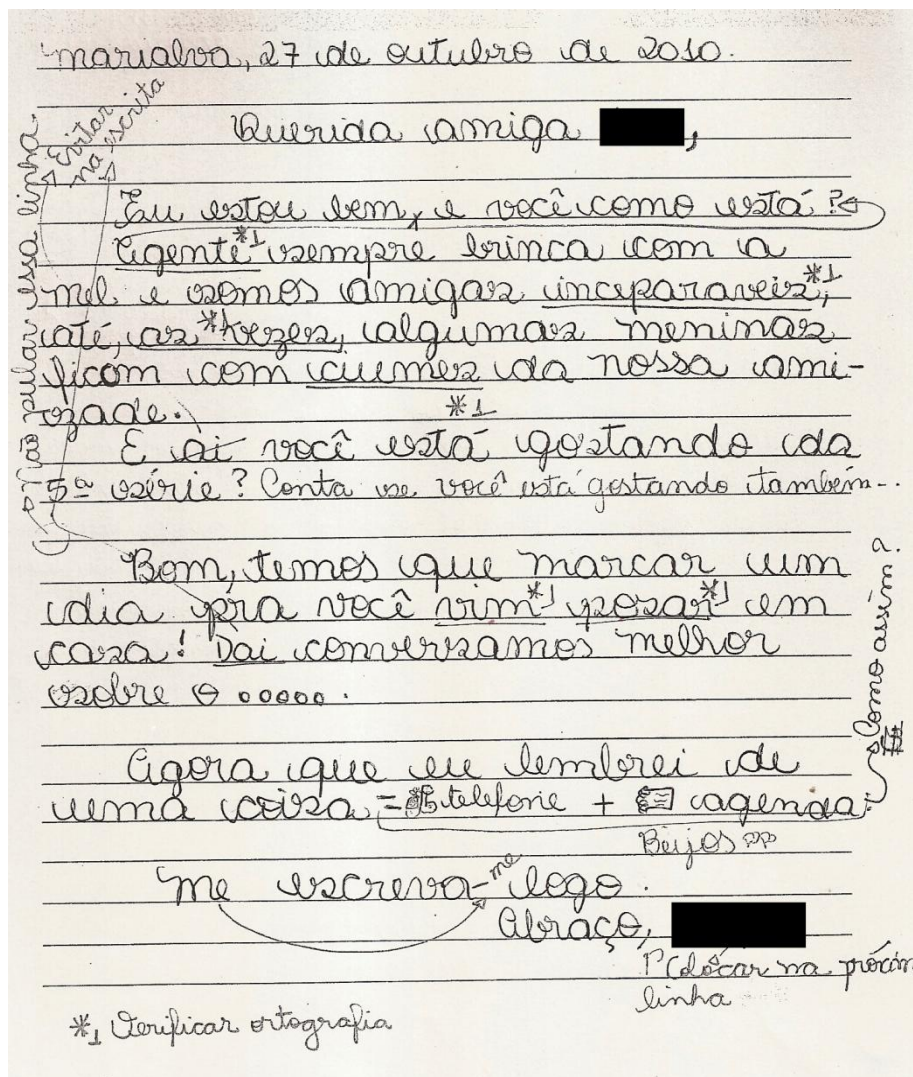 Marialva, 27 de outubro de 2010.
Evitar
na escrita
Querida amiga
,
Não pular essa linha.
Eu estou bem, e você como está?
Agente *1 sempre brinca com a
mel e somos amigas inceparaveis, *1
até, as *1 vezes, algumas meninas
ficam com ciumes da nossa ami-
zade.
*1
E ai você está gostando da
5ª série? Conta se você está gostando também...
Bom, temos que marcar um
dia pra você vim *1 posar *1 em
casa! Dai conversamos melhor
sobre o ooooo.
Como assim?
Agora que eu lembrei de
uma coisa = telefone + agenda
Beijos
Me escreva-me logo.
Abraço,
Colocar na próxim
linha
*1 Verificar ortografia